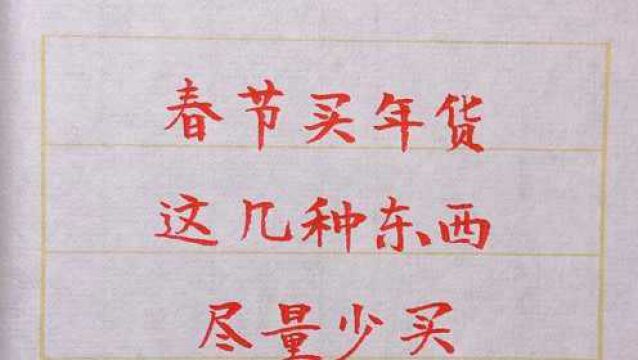 春节买年货
这几种东西
尽量少买